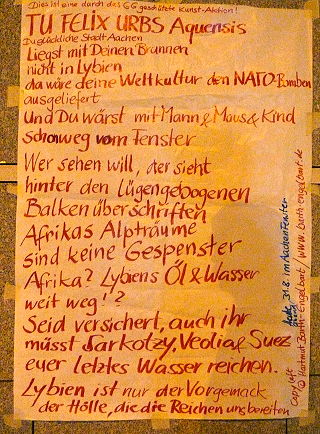 Dies ist eine durch das GG geschützte Kunst-Aktion!
TU FELIX URBS Aquensis
Du glückliche Stadt Aachen
Liegst mit Deinen Brunnen
nicht in Lybien
da wäre deine Weltkultur den NATO-Bomben
ausgeliefert
Und Du wärst mit Mann & Maus & Kind
schon weg vom Fenster
Wer sehen will, der sieht
hinter den Lügengebogenen
Balkenüberschriften
Afrikas Alpträume
sind keine Gespenster
Afrika? Lybiens Öl & Wasser
weit weg!?
Seid versichert, auch ihr
müsst Sarkotzy, Veolia & Suez
euer letztes Wasser reichen.
Lybien ist nur der Vorgemack
der Hölle, die die Reichen uns bereiten
31.8 im Aachen Fenster
Copyleft
© Hartmut Barth-Engelbart / www.barth-engelbart.de